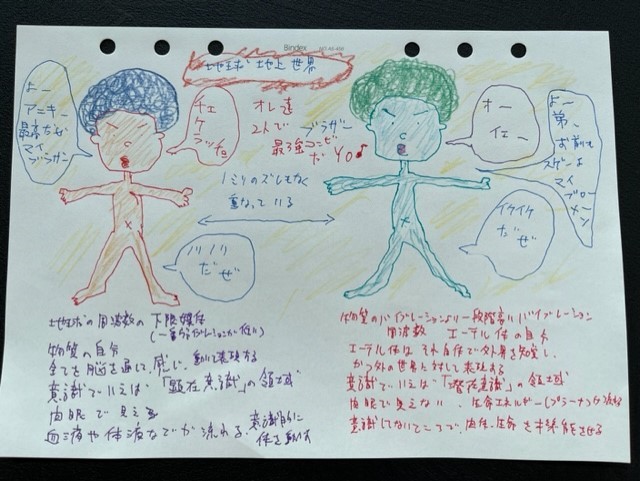 Bindex
地球 地上 世界
よー
アニキー
最高だぜ
マイ
ブラザー
チェ
ケ
ラッチョ
オレ達
2人で ブラザー
最強コンビ
だ YO♪
オー
イェー
よー
弟、
お前も
スゲーよ
マイ
ブロー
メン
1ミリのズレもなく
重なっている
ノリノリ
だぜ
イケイケ
だぜ
地球の周波数の下限媒体
(一番バイブレーションが低い)
物質の自分
全てを脳を通じて、感じ、動いて表現する
意識でいえば「顕在意識」の領域
肉眼で見える
血液や体液などが流れる、意識的に
体を動かす
物質のバイブレーションより一段階高いバイブレーション
周波数 エーテル体の自分
エーテル体は それ自体で外界を知覚し、
かつ外の世界に対して表現する
意識でいえば、「潜在意識」の領域
肉眼で見えない、生命エネルギー(プラーナ)が流れる
意識してないところで、肉体、生命を